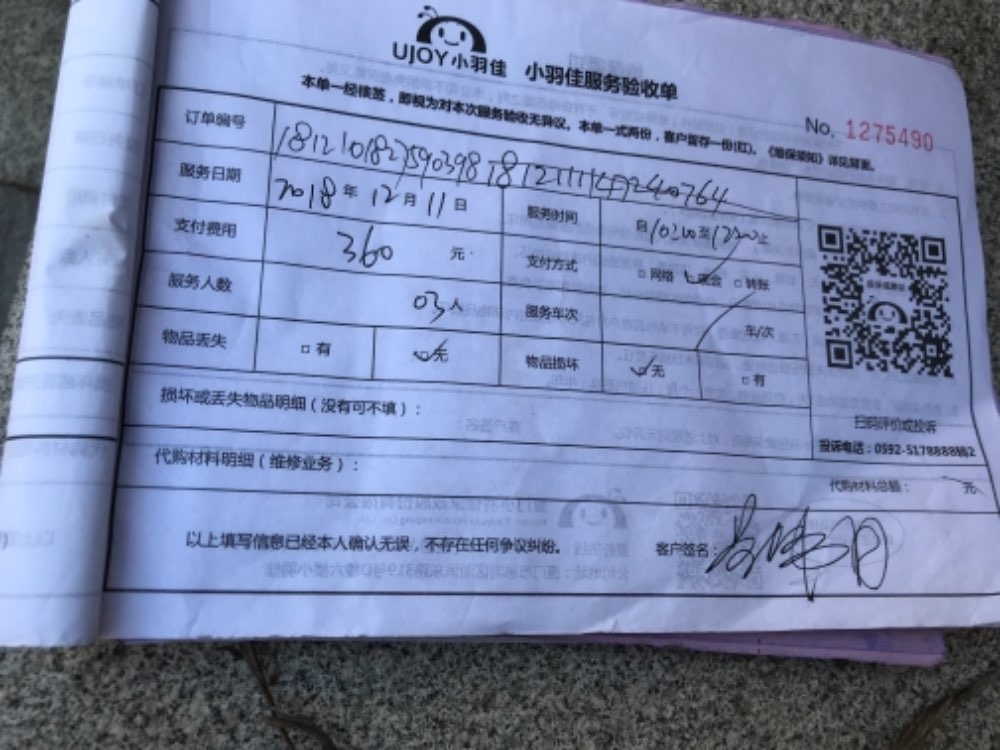 UJOY小羽佳 小羽佳服务验收单
本单一经核签，即视为对本次服务验收无异议。本单一式两份，客户留存一份(红)。《维保须知》详见背面。
No. 1275490
订单编号
服务日期 2018年12月11日 服务时间
支付费用 360 元 支付方式 □网络 现金 □转账
服务人数 03人 服务车次 车/次
物品丢失 □有 无 物品损坏 无 □有
扫码评价或投诉
损坏或丢失物品明细（没有可不填）：
投诉电话：0592-5178888转2
代购材料明细（维修业务）：
代购材料总额： 元
以上填写信息已经本人确认无误，不存在任何争议纠纷。 客户签名：